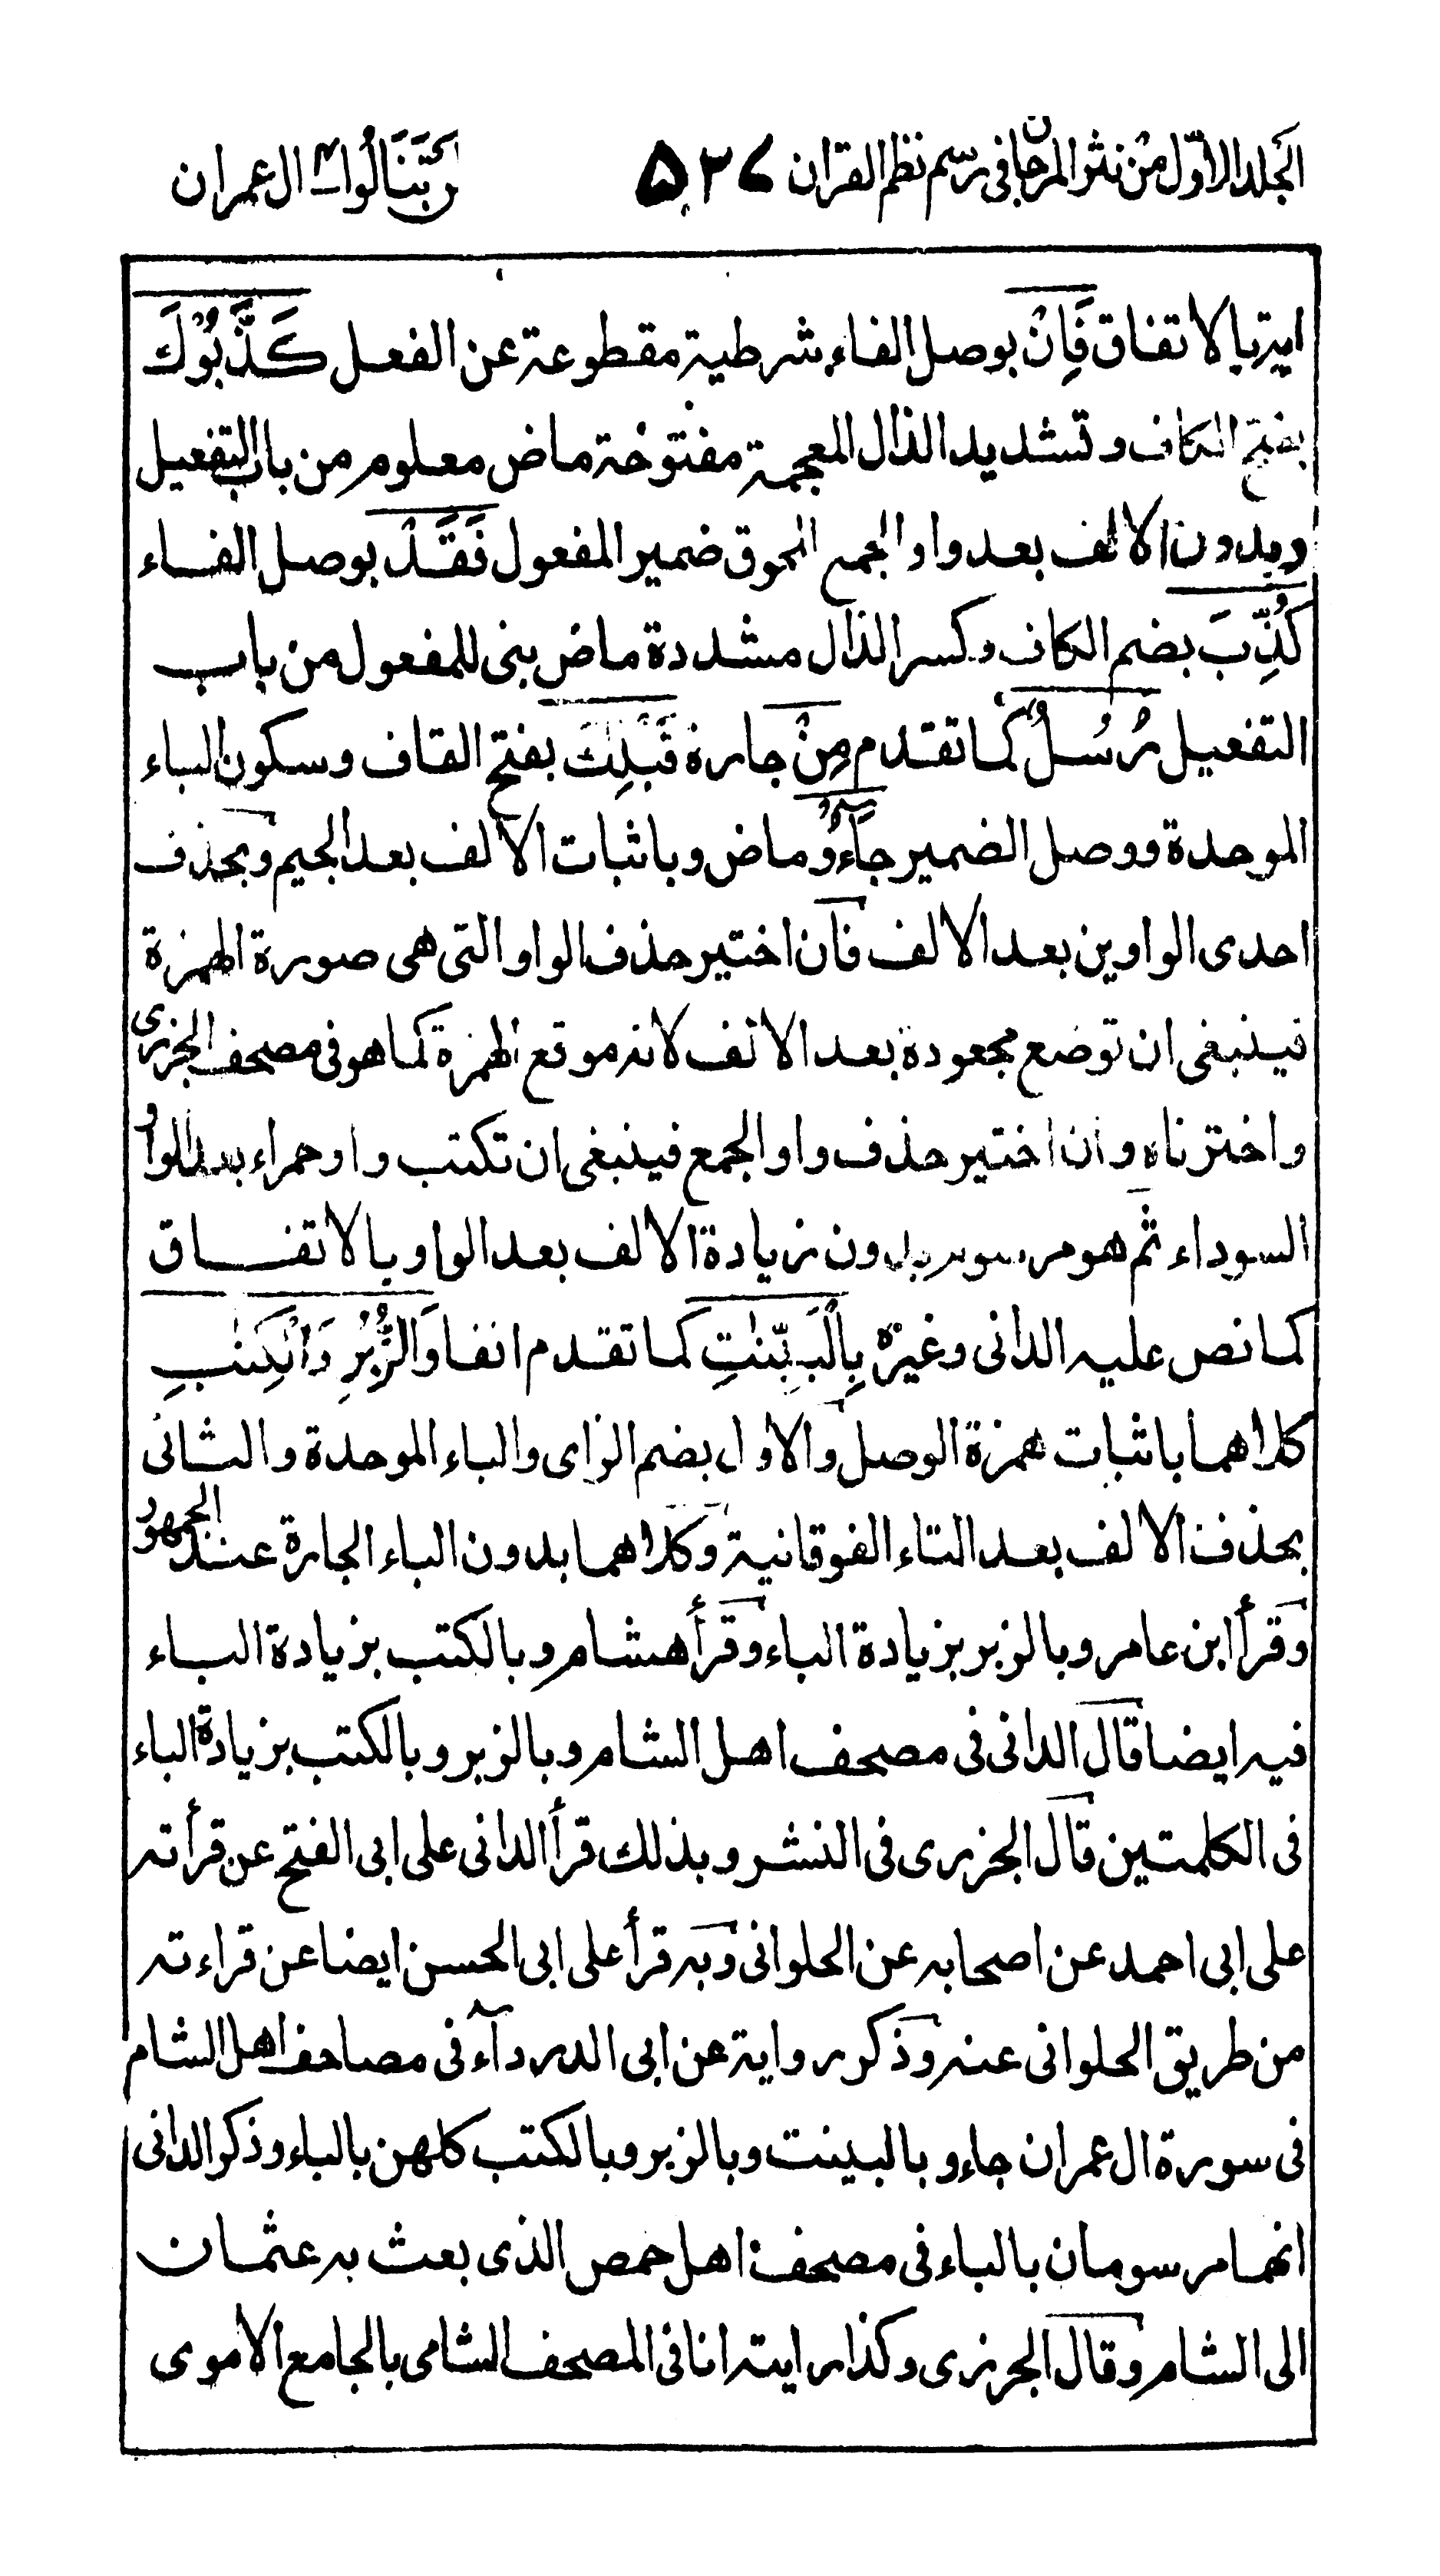 الجلد الاول من نثر المرجان فى رسم نظم القران ۵۲۷ لن تنالوا ٤ ال عمران
اية بالاتفاق فَاِنْ بوصل الفاء شرطية مقطوعة عن الفعل كَذَّبُوْكَ
بفتح الكاف وتشديد الذال المعجمة مفتوحة ماض معلوم من باب التفعيل
وبدون الالف بعد واو الجمع للحوق ضمير المفعول فَقَدْ بوصل الفاء
كُذِّبَ بضم الكاف وكسر الذال مشددة ماض بنى للمفعول من باب
التفعيل رُسُلٌ كما تقدم مِنْ جارة قَبْلِكَ بفتح القاف وسكون الباء
الموحدة ووصل الضمير جَآءُوْ ماض وباثبات الالف بعد الجيم وبحذف
احدى الواوين بعد الالف فان اختير حذف الواو التى هى صورة الهمزة
فينبغى ان توضع مجعودة بعد الالف لانه موقع الهمزة كما هو فى مصحف الجزرى
واخترناه وان اختير حذف واو الجمع فينبغى ان تكتب واو حمراء بعد الواو
السوداء ثم هو مرسوم بدون زيادة الالف بعد الواو بالاتفاق
كما نص عليه الدانى وغيره بِالْبَيِّنٰتِ كما تقدم انفا وَالزُّبُرِ وَالْكِتٰبِ
كلاهما باثبات همزة الوصل والاول بضم الزاى والباء الموحدة والثانى
بحذف الالف بعد التاء الفوقانية وكلاهما بدون الباء الجارة عند الجمهور
وقرأ ابن عامر وبالزبر بزيادة الباء وقرأ هشام وبالكتب بزيادة الباء
فيه ايضا قال الدانى فى مصحف اهل الشام وبالزبر وبالكتب بزيادة الباء
فى الكلمتين قال الجزرى فى النشر وبذلك قرأ الدانى على ابى الفتح عن قرأته
على ابى احمد عن اصحابه عن الحلوانى وبه قرأ على ابى الحسن ايضا عن قراءته
من طريق الحلوانى عنه وذكر رواية عن ابى الدرداء فى مصاحف اهل الشام
فى سورة ال عمران جاءو بالبينت وبالزبر وبالكتب كلهن بالباء وذكر الدانى
انهما مرسومان بالباء فى مصحف اهل حمص الذى بعث به عثمان
الى الشام وقال الجزرى وكذا رايته انا فى المصحف الشامى بالجامع الاموى